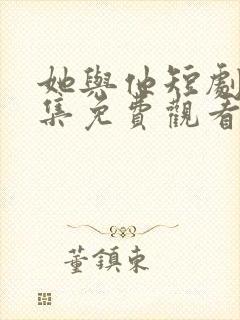 她與他短劇
集免費觀看
董鎮東